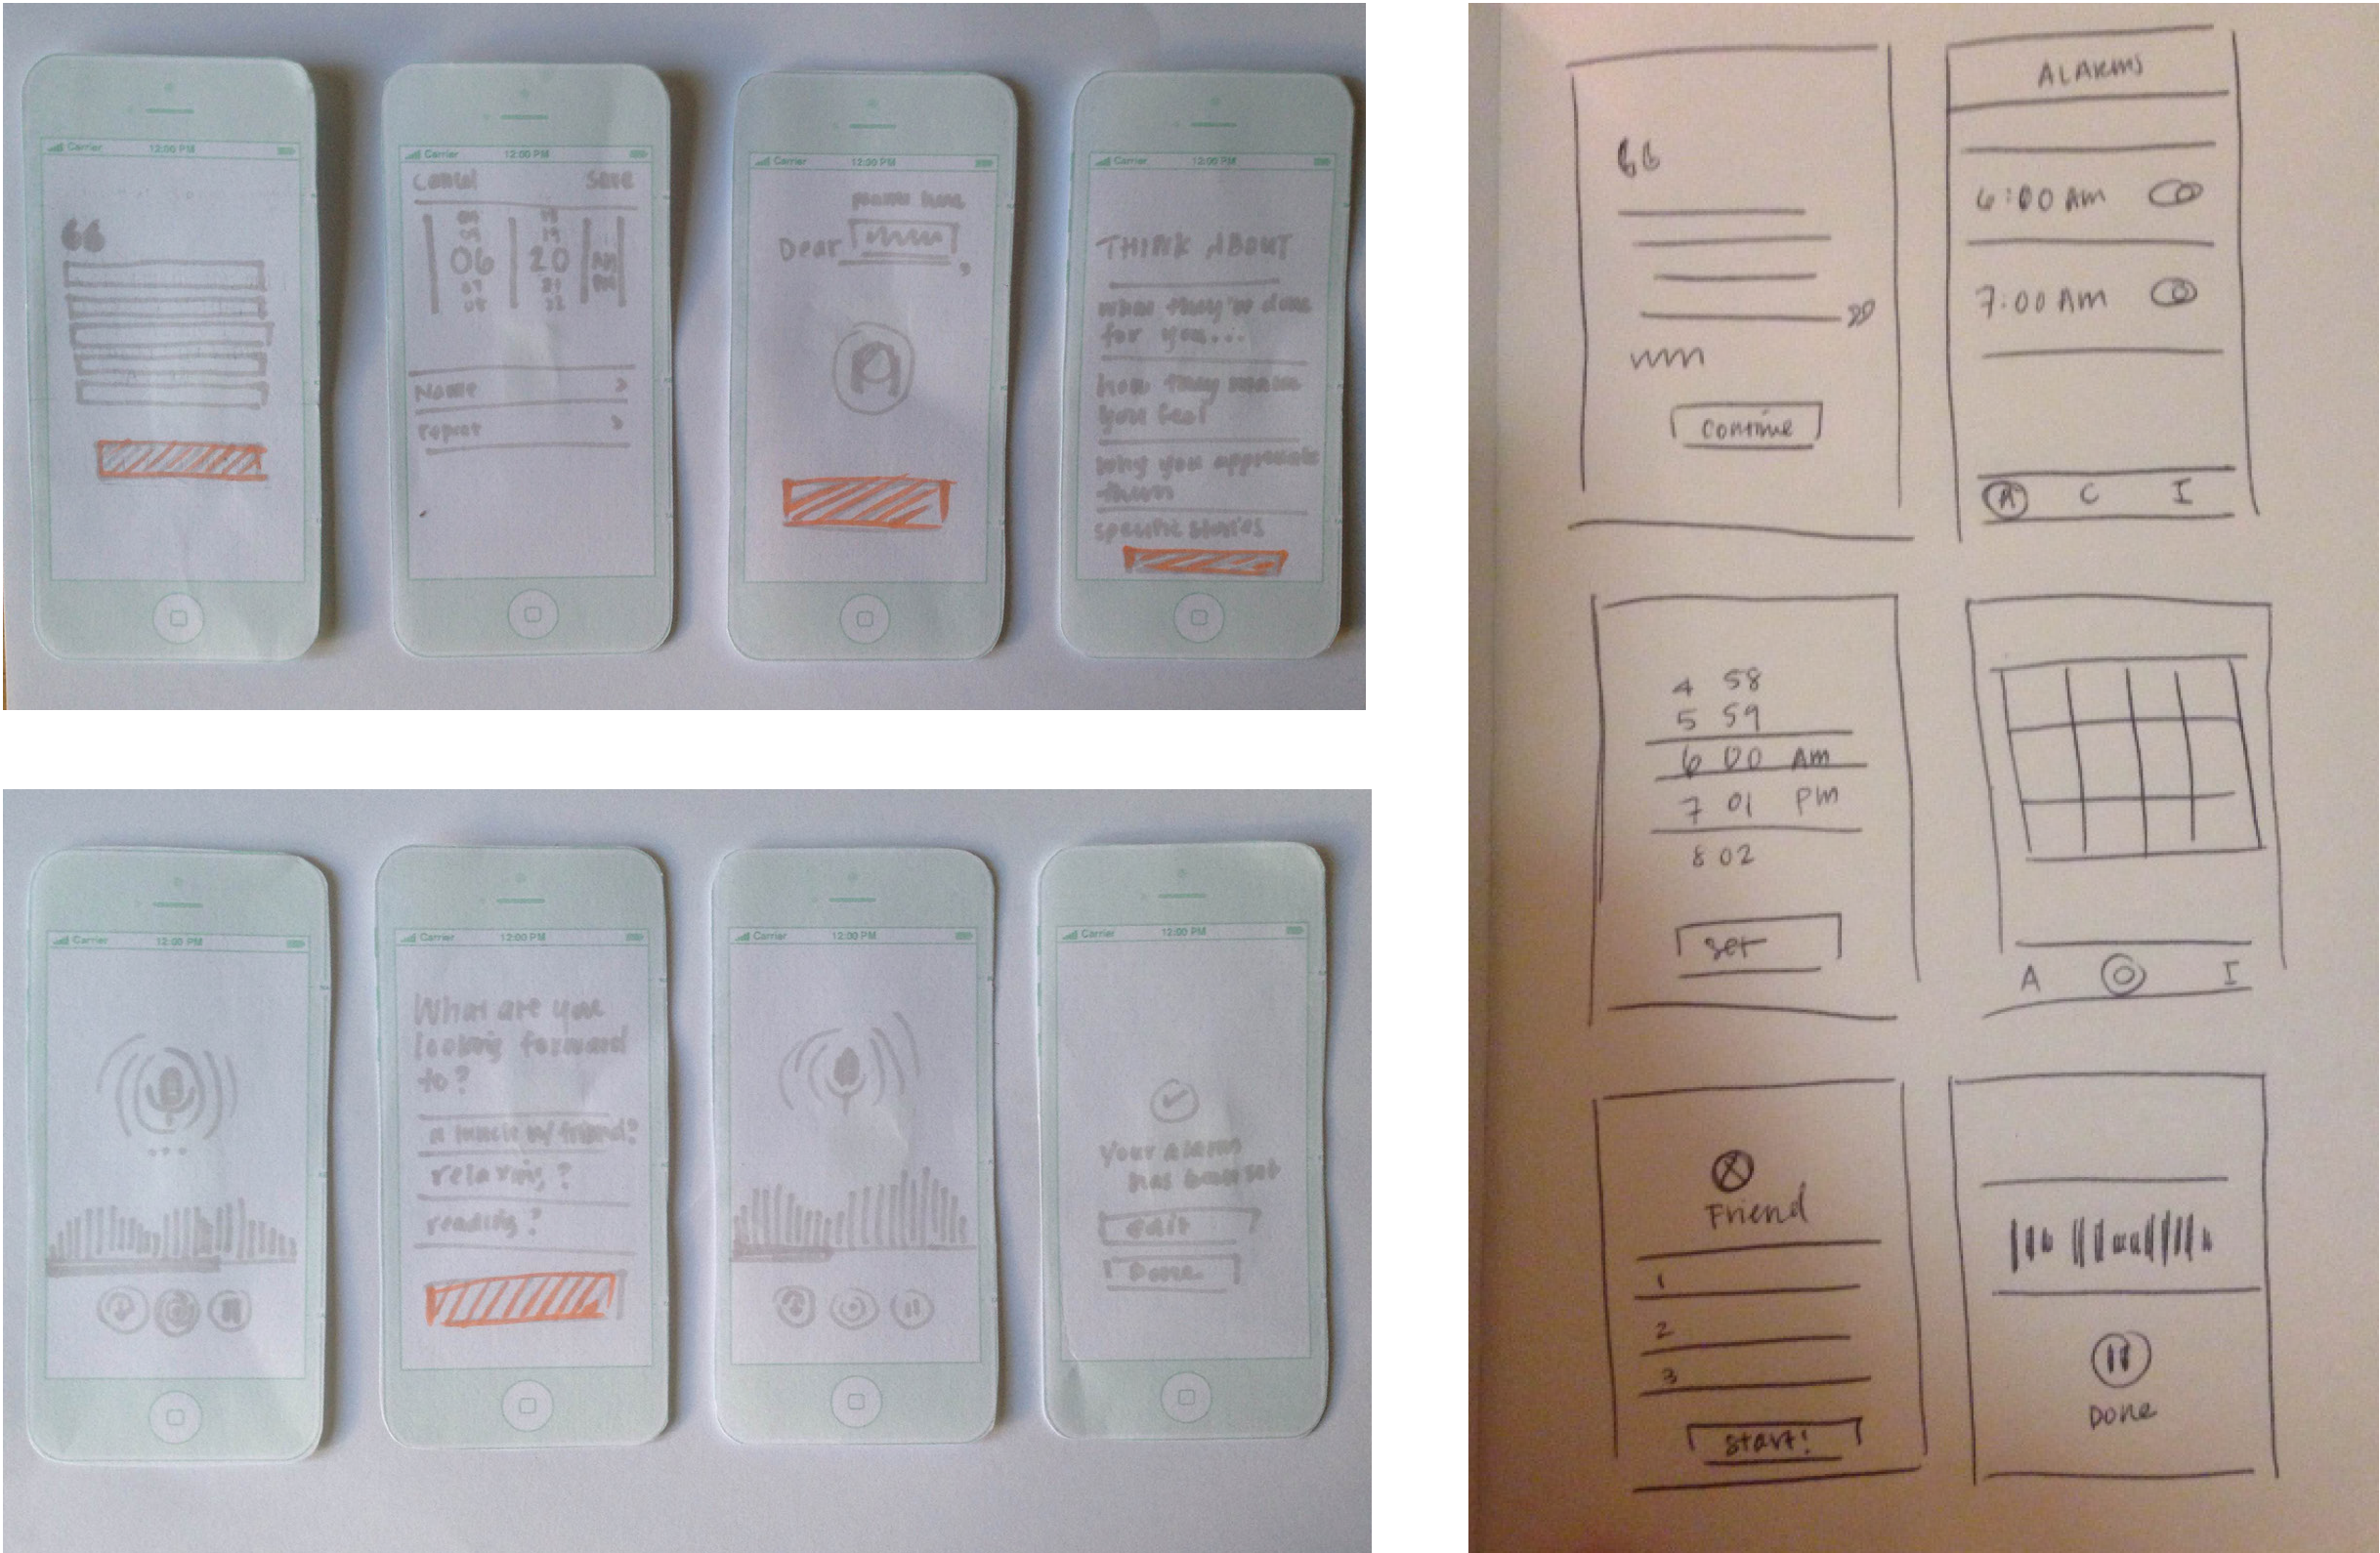 Carrier 12:00 PM
“
Carrier 12:00 PM
Cancel Save
09
06 20 AM
07 21 PM
08 22
Name >
repeat >
Carrier 12:00 PM
name here
Dear ,
Carrier 12:00 PM
THINK ABOUT
what they've done
for you...
how they make
you feel
why you appreciate
them
specific stories
Carrier 12:00 PM
...
Carrier 12:00 PM
What are you
looking forward
to?
a lunch w/ friend?
relaxing?
reading?
Carrier 12:00 PM
Carrier 12:00 PM
Your alarm
has been set
edit
Done
“
”
Continue
ALARMS
6:00 AM
7:00 AM
A C I
4 58
5 59
6 00 AM
7 01 PM
8 02
Set
A I
Friend
1
2
3
Start!
Done